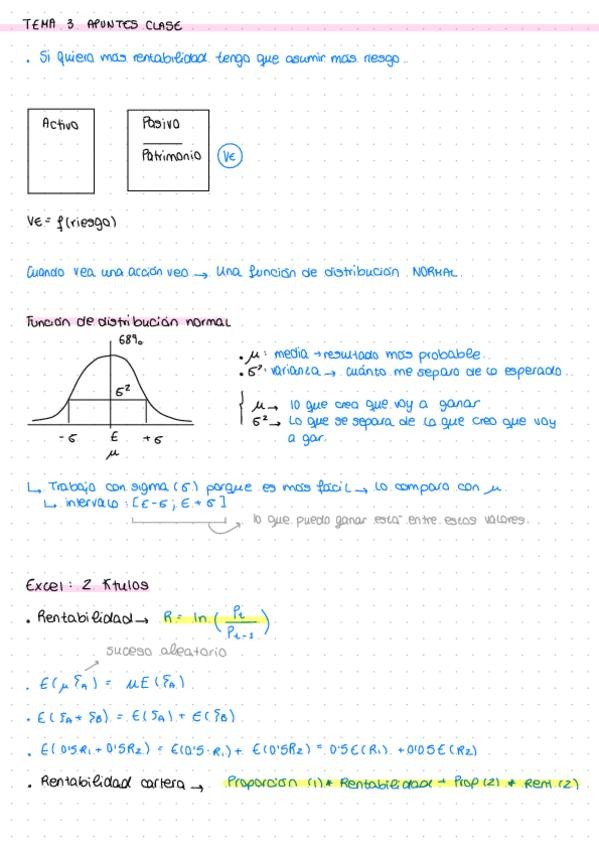 TEMA 3 APUNTES CLASE
. Si quiero más rentabilidad tengo que asumir más riesgo.
Activo
Pasivo
Patrimonio
VE
VE = f(riesgo)
Cuando vea una acción veo → Una función de distribución NORMAL.
Función de distribución normal
68%
σ²
-σ E +σ
μ
• μ: media → resultado más probable.
• σ²: varianza → cuánto me separo de lo esperado.
μ → lo que creo que voy a ganar
σ² → Lo que se separa de lo que creo que voy
a gar.
↳ Trabajo con sigma (σ) porque es más fácil → lo comparo con μ
↳ intervalo: [E-σ; E+σ]
lo que puedo ganar está entre estos valores.
Excel: 2 títulos
. Rentabilidad → R = ln (Pt / Pt-1)
suceso aleatorio
. E(μ δA) = μE(δA)
. E(δA + δB) = E(δA) + E(δB)
. E(0'5R1 + 0'5R2) = E(0'5·R1) + E(0'5R2) = 0'5E(R1) + 0'05E(R2)
. Rentabilidad cartera → Proporción (1) * Rentabilidad + Prop (2) * Rent (2)